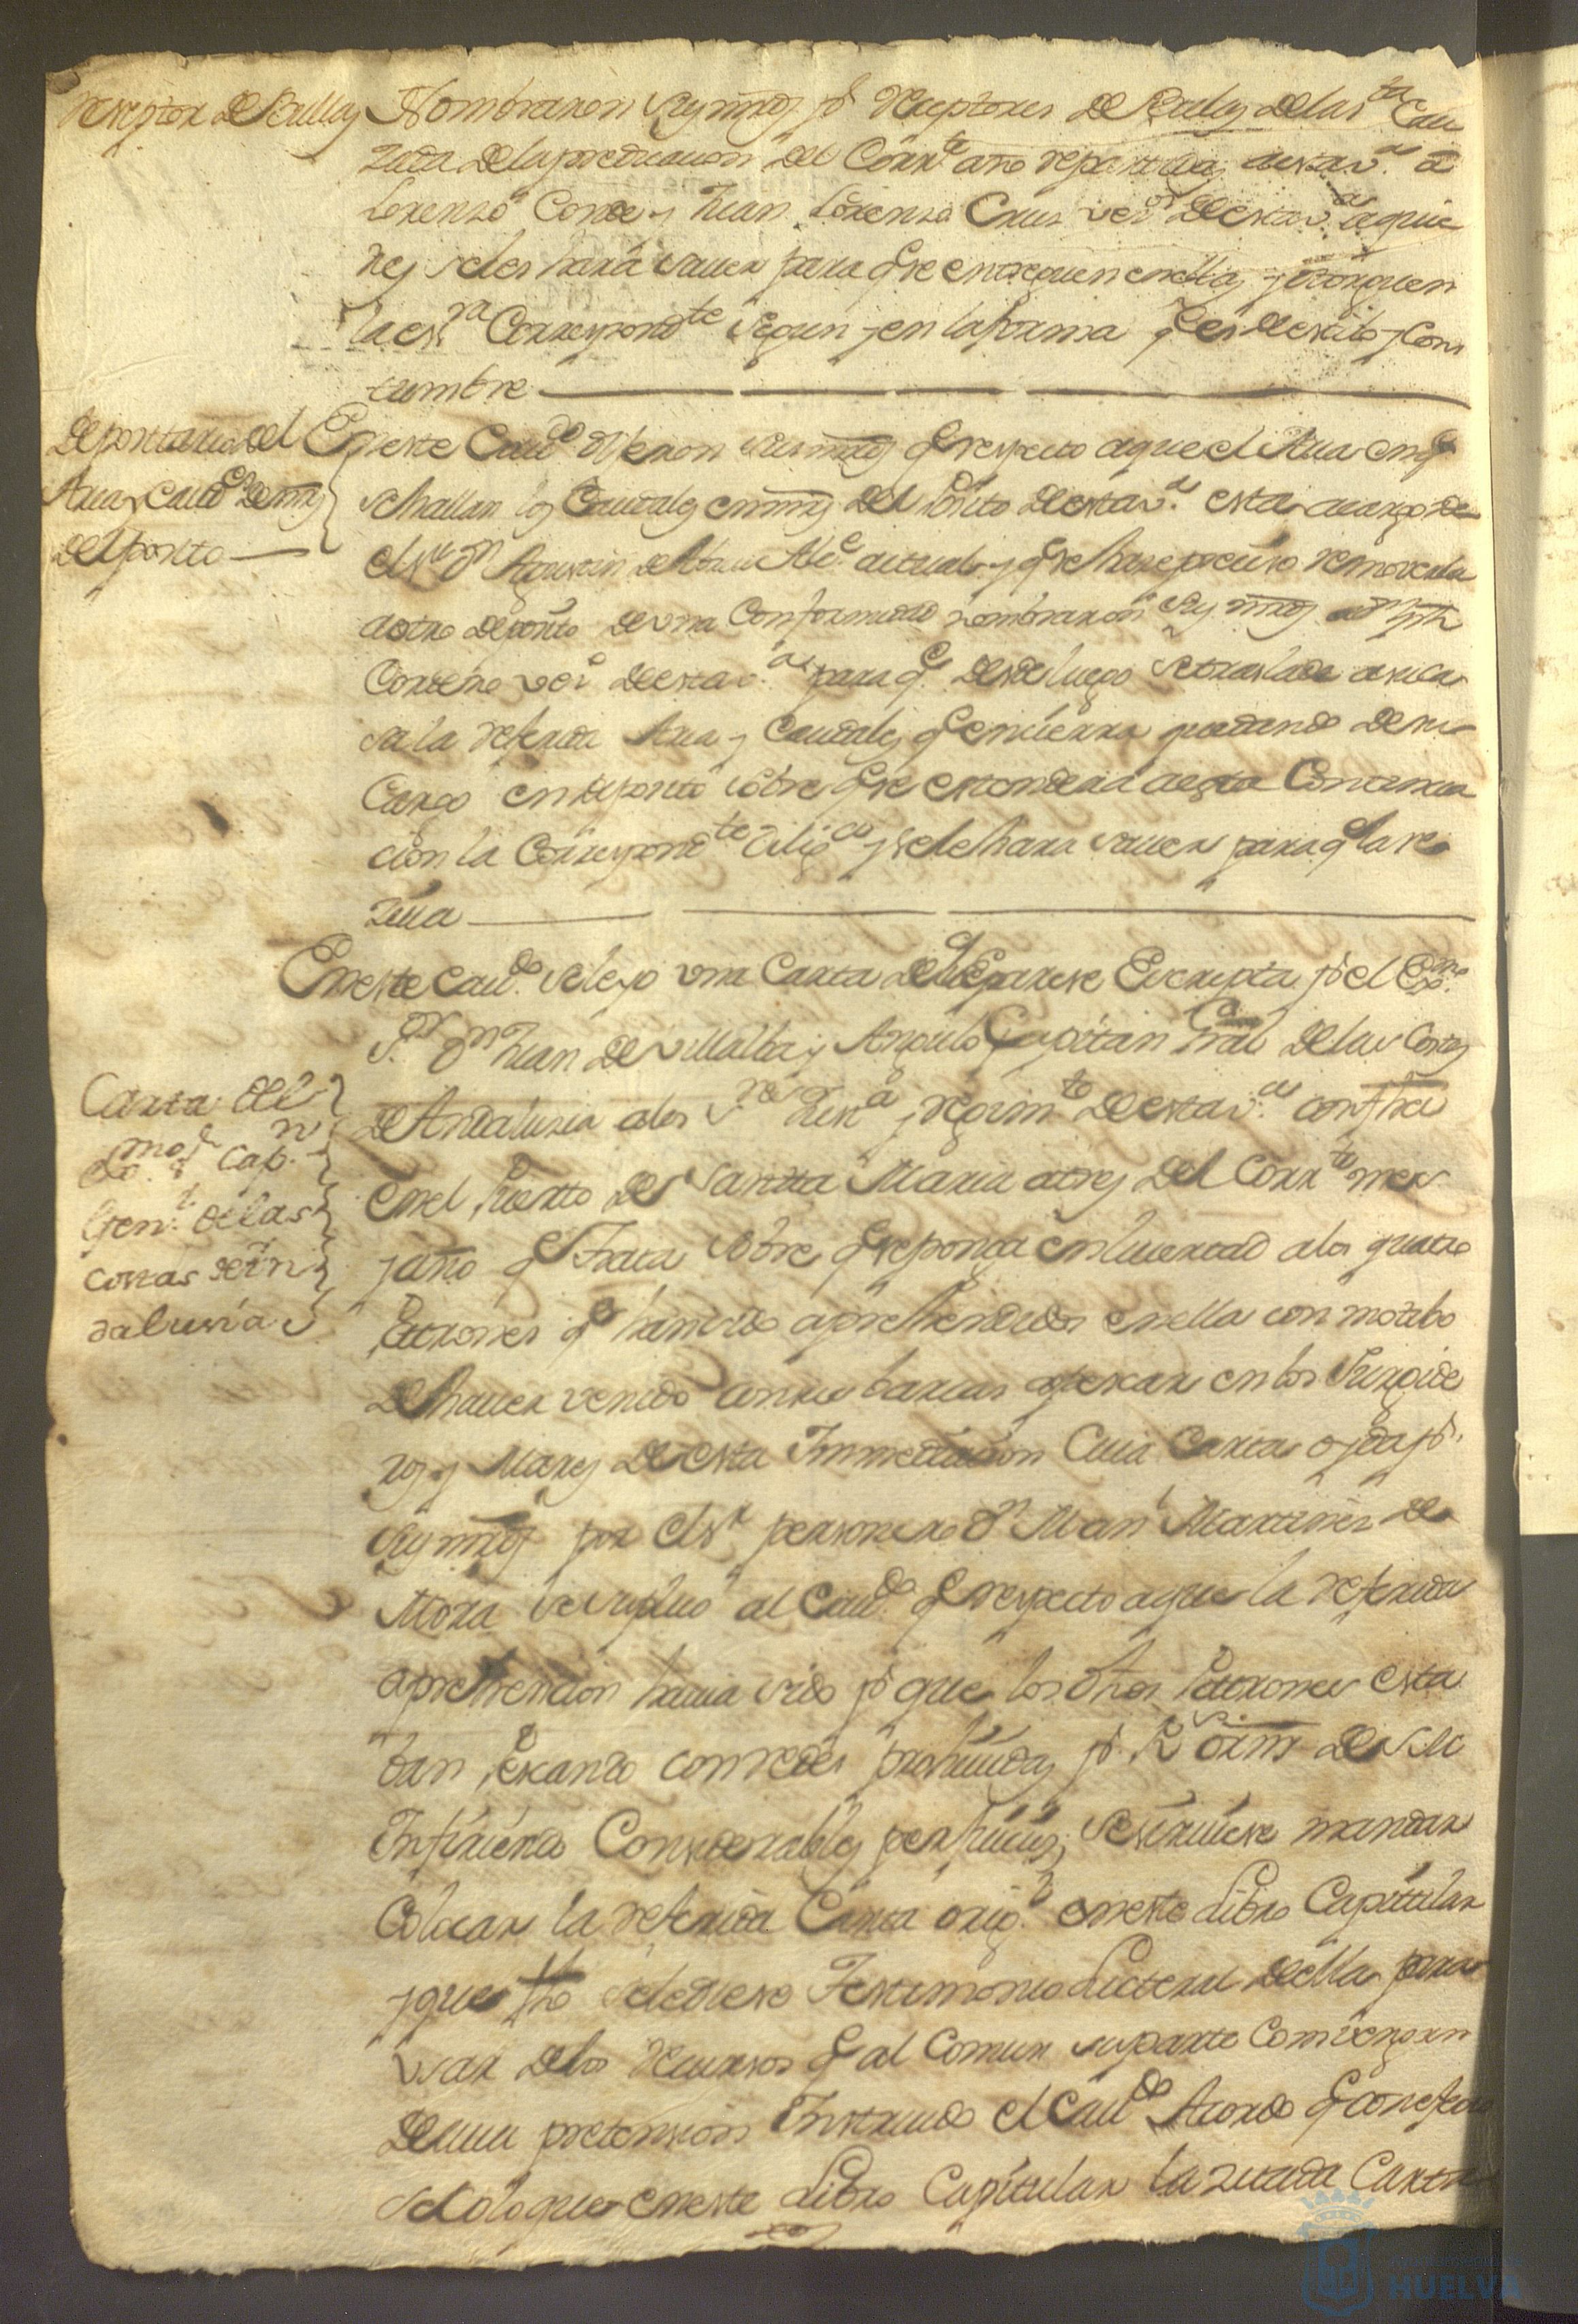 Receptor de Bullas
Nombraron sus mrds pr Receptores de Bulas de la sta Cru
zada de la predicacion del Corrte año repartidas a esta va a
Lorenzo Conde y Juan Lorenzo Cruz vezs de esta va a quie
nes se les hará saver para q se entreguen en ellas y otorguen
la essra Correspondte segun y en la forma q es de estilo y Cos
tumbre
Depositario del
Arca y Caudes de mrs
del posito
En este Caudo Dijeron sus mrds q respecto a que el Arca en q
se hallan los Caudales en mrs del Posito de esta va esta a cargo de
el sr Dn Agustin de Alce actual y q se hase preciso removerla
a otro deposito de una Conformidad nombraron sus mrds a
vezo de esta va para q desde luego se traslade a su ca
sa la referida Arca y Caudales q encierra quedando de su
Cargo en deposito sobre q se extenderá a esta Continua
cion la Correspondte Diliga y se le hara saver para q la re
zeva
Carta del
Exmo sr Capn
Genl de las
costas de An
dalusia
En este Caudo se leyo una Carta del q parese Escripta pr el Exmo
Sr Dn Juan de Villalba y Angulo Capitan Gral de las Costas
de Andalusia a los sres Justa y Regimto de esta va con fha
en el Puerto de Santta Maria a tres del Corrte mes
y año q Trata sobre q se ponga en livertad a los quatro
Patrones q han sido aprehendidos en ella con motibo
de haver venido con sus barcas a pescar en los Surgide
ros y Mares de esta Immediacion Cuia Carta oyda pr
sus mrds por el sr personero Dn Manl Martinez de
Mora se suplicó al Caudo q respecto a que la referida
aprehencion havia sido pr que los dhos Patrones esta
ban pescando con redes prohividas pr Rs ordns de S M
Infiriendo Considerables perjuicios se sirviese mandar
Colocar la referida Carta origl en este Libro Capitular
y que fho se le diese Testimonio Literal de ella para
usar de los recursos q al Comun su parte Convengan
de cuia pretension Instruido el Caudo Acordó q con efecto
se coloque en este Libro Capitular la zitada Carta
HUELVA